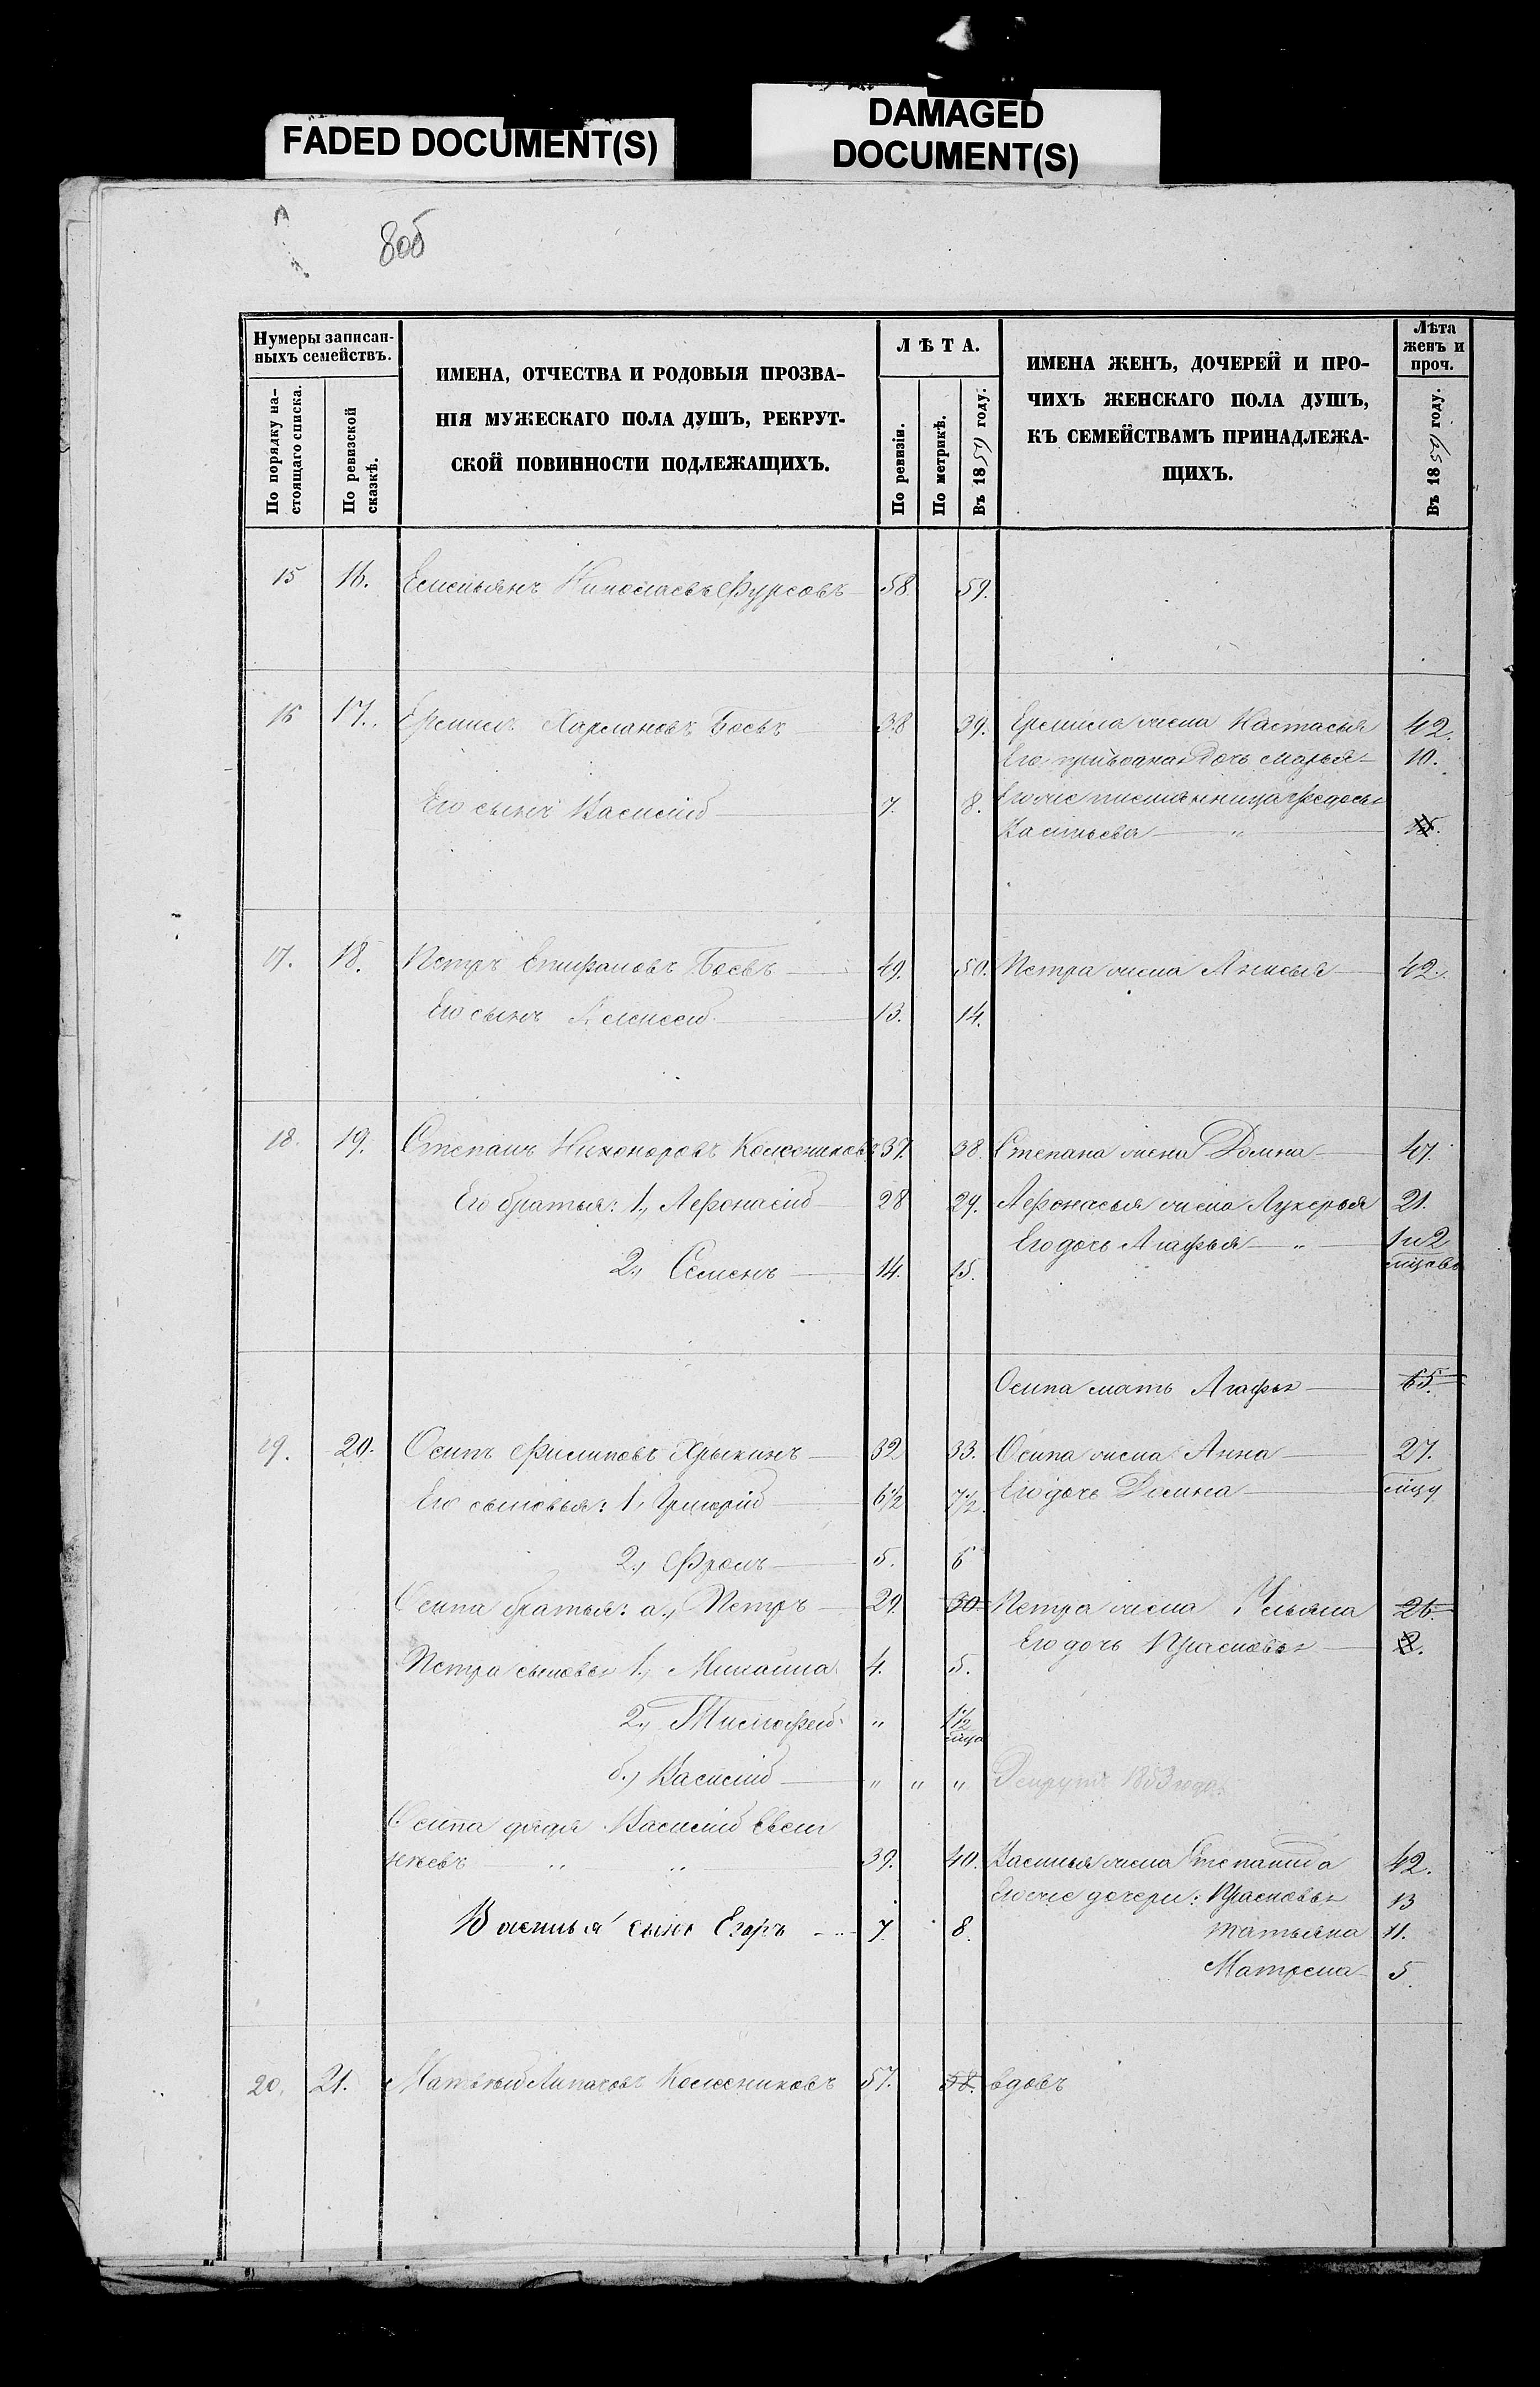 FADED DOCUMENT(S)
DAMAGED
DOCUMENT(S)
8об
Нумеры записан-
ныхъ семействъ.
По порядку на-
стоящаго списка.
По ревизской
сказкѣ.
ИМЕНА, ОТЧЕСТВА И РОДОВЫЯ ПРОЗВА-
НІЯ МУЖЕСКАГО ПОЛА ДУШЪ, РЕКРУТ-
СКОЙ ПОВИННОСТИ ПОДЛЕЖАЩИХЪ.
ЛѢТА.
По ревизіи.
По метрикѣ.
Въ 1859 году.
ИМЕНА ЖЕНЪ, ДОЧЕРЕЙ И ПРО-
ЧИХЪ ЖЕНСКАГО ПОЛА ДУШЪ,
КЪ СЕМЕЙСТВАМЪ ПРИНАДЛЕЖА-
ЩИХЪ.
Лѣта
женъ и
проч.
Въ 18 году.
15 16. Емельянъ Николаевъ Фурсовъ 58. 59.
16 17. Ермилъ Харлановъ Боевъ 38 39. Ермила жена Настасья 42.
Его дочь Марья 10.
Его сынъ Василій 7. 8. Его же племянница Федосья
Васильева „
17. 18. Петръ Епифановъ Боевъ 49. 50. Петра жена Аксинья 42.
Его сынъ Алексей 13. 14.
18. 19. Степанъ Никоноровъ Колесниковъ 37. 38. Степана жена Домна 47.
Его братья: 1., Афонасій 28 29. Афонасья жена Лукерья 21.
Его дочь Агафья „ 1 и 2
мѣсяцовъ
2., Семенъ 14. 15.
Осипа мать Агафья 65.
19. 20. Осипъ Филиповъ Хрыкинъ 32 33. Осипа жена Анна 27.
Его сыновья: 1, Григорій 6½ 7½. Его дочь Домна мѣсяцу
2., Фролъ 5. 6
Осипа братья: а., Петръ 29. 30. Петра жена Ульяна 26.
Его дочь Прасковья 2.
Петра сыновья 1., Михайла 4. 5.
2., Тимофей „ 1½
мѣсяца
б.) Василій „ „ „ Рекрутъ 1853 года.
Осипа дядя Василій Евсиг
неевъ „ „ 39. 40. Василья жена Степанида 42.
Его же дочери: Прасковья 13
Василья сынъ Егоръ 7. 8. Татьяна 11.
Матрена 5.
20. 21. Матвѣй Колесниковъ 57. 58. вдовъ